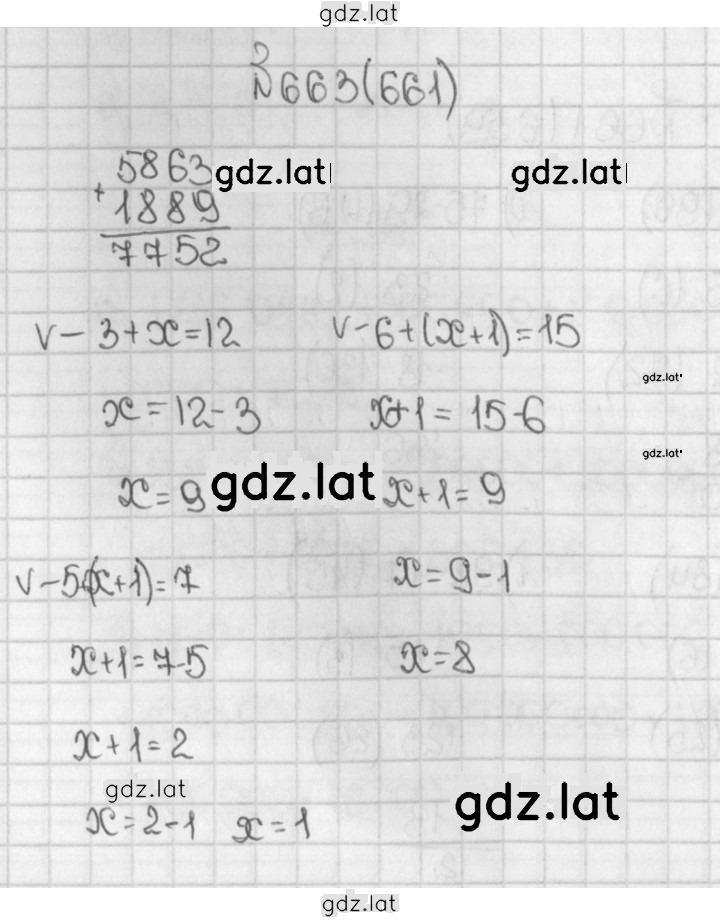 gdz.lat
№663(661)
5863 gdz.lat gdz.lat
+1889
7752
v - 3+x=12 v - 6+(x+1)=15
gdz.lat
x=12-3 x+1=15-6
gdz.lat
x=9 gdz.lat x+1=9
v - 5(x+1)=7 x=9-1
x+1=7-5 x=8
x+1=2
gdz.lat gdz.lat
x=2-1 x=1
gdz.lat